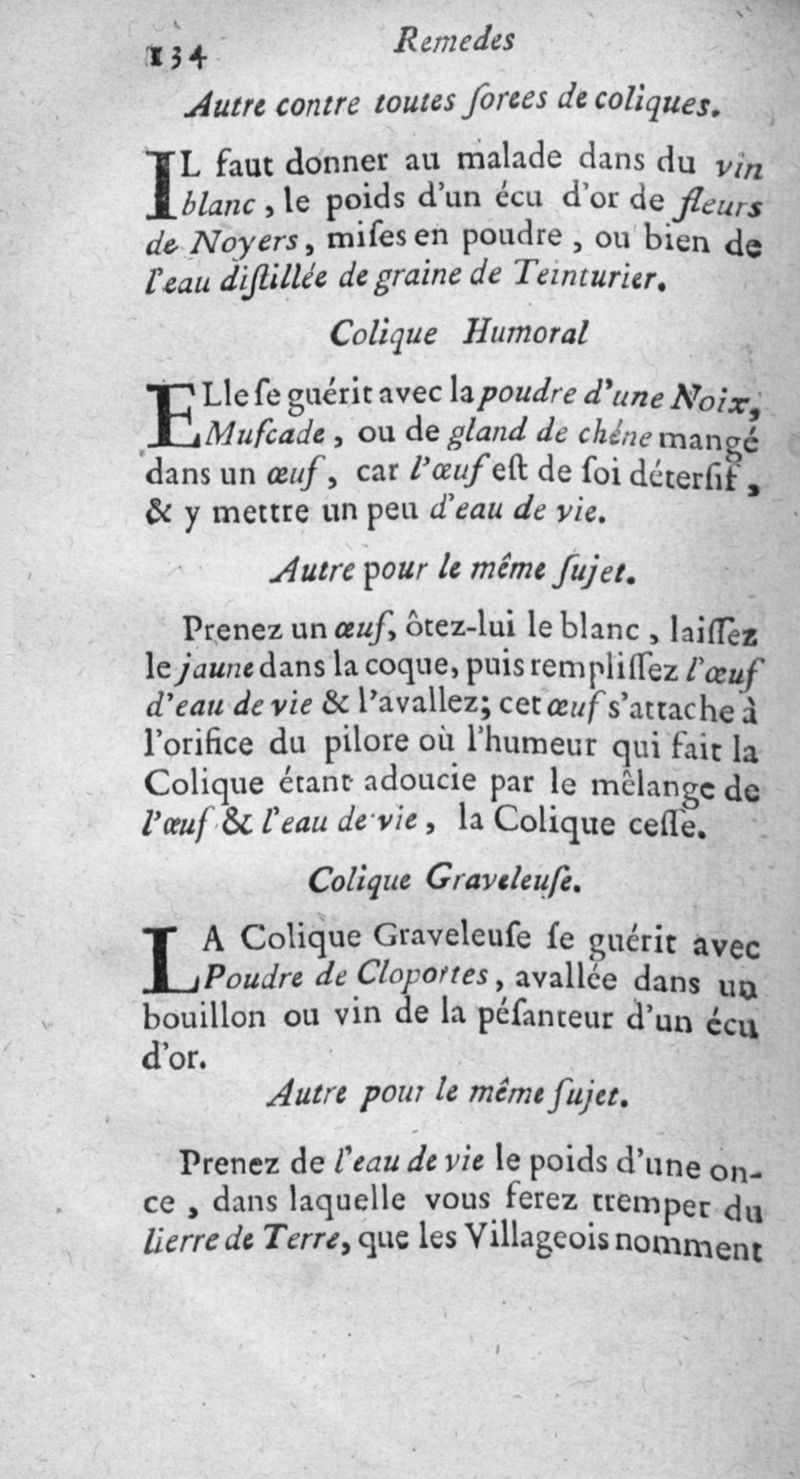 134 Remedes
Autre contre toutes ſortes de coliques.
IL faut donner au malade dans du vin
blanc, le poids d'un écu d'or de fleurs
de Noyers, miſes en poudre, ou bien de
l'eau diſtillée de graine de Teinturier.
Colique Humoral
ELle ſe guérit avec la poudre d'une Noix,
Muſcade, ou de gland de chêne mangé
dans un œuf, car l'œuf eſt de ſoi déterſif,
& y mettre un peu d'eau de vie.
Autre pour le même ſujet.
Prenez un œuf, ôtez-lui le blanc, laiſſez
le jaune dans la coque, puis rempliſſez l'œuf
d'eau de vie & l'avallez; cet œuf s'attache à
l'orifice du pilore où l'humeur qui fait la
Colique étant adoucie par le mêlange de
l'œuf & l'eau de vie, la Colique ceſſe.
Colique Graveleuſe.
LA Colique Graveleuſe ſe guérit avec
Poudre de Cloportes, avallée dans un
bouillon ou vin de la péſanteur d'un écu
d'or.
Autre pour le même ſujet.
Prenez de l'eau de vie le poids d'une on-
ce, dans laquelle vous ferez tremper du
lierre de Terre, que les Villageois nomment